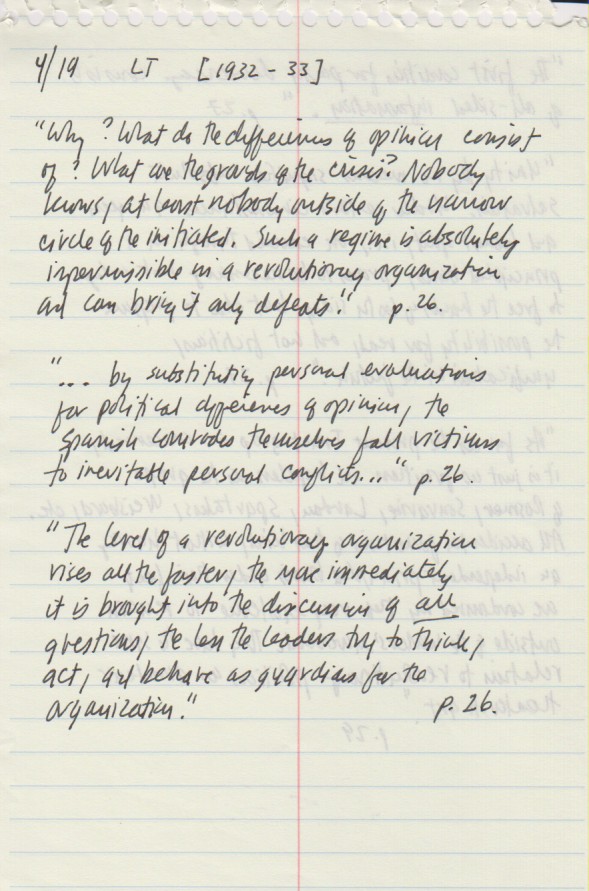 4/19 LT [1932-33]
"Why? What do the differences of opinion consist
of? What are the grounds of the crisis? Nobody
knows, at least nobody outside of the narrow
circle of the initiated. Such a regime is absolutely
impermissible in a revolutionary organization
and can bring it only defeats." p. 26.
"... by substituting personal evaluations
for political differences of opinion, the
Spanish comrades themselves fall victims
to inevitable personal conflicts..." p. 26.
"The level of a revolutionary organization
rises all the faster, the more immediately
it is brought into the discussion of all
questions, the less the leaders try to think,
act, and behave as guardians for the
organization." p. 26.